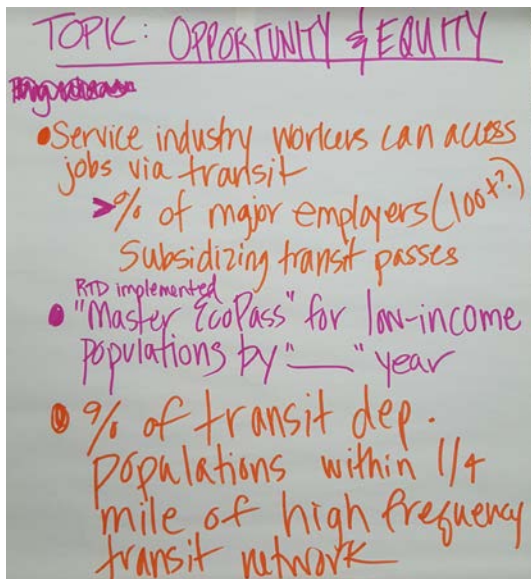 TOPIC: OPPORTUNITY & EQUITY
• Service industry workers can access
jobs via transit
> % of major employers (100+?)
Subsidizing transit passes
RTD implemented
• "Master EcoPass" for low-income
populations by "___" year
• % of transit dep.
populations within 1/4
mile of high frequency
transit network